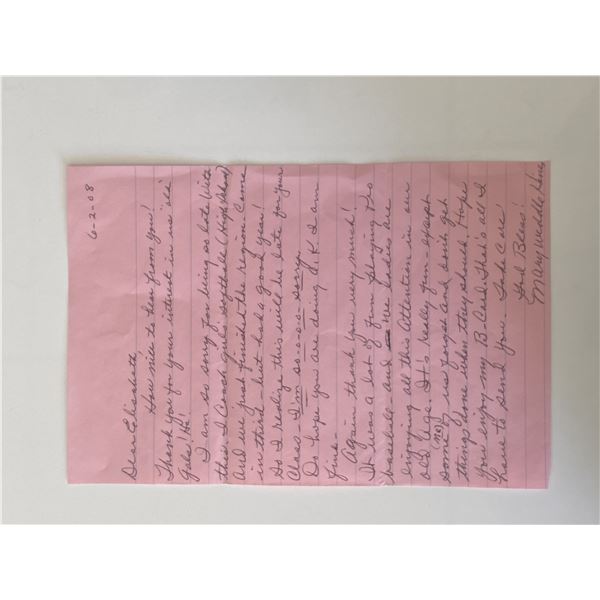 6-2-08
Dear Elisabeth
How nice to hear from you!
Thank you for your interest in us "ole"
Gals! Ha!
I am so sorry for being so late with
this. I coach girls softball (High School)
and we just finished the region. Came
in third - but had a good year!
So I realize this will be late for your
Class - I'm so-o-o-o sorry.
Do hope you are doing O.K. I am
fine -
Again thank you very much!
It was a lot of fun playing Pro
baseball and we ladies are
enjoying all this Attention in our
old age. It's really fun - except
some of us (me) forget and don't get
things done when they should. Hope
you enjoy my B-Card. That's all I
have to send you - Take Care!
God Bless!
Mary Weddle Hines